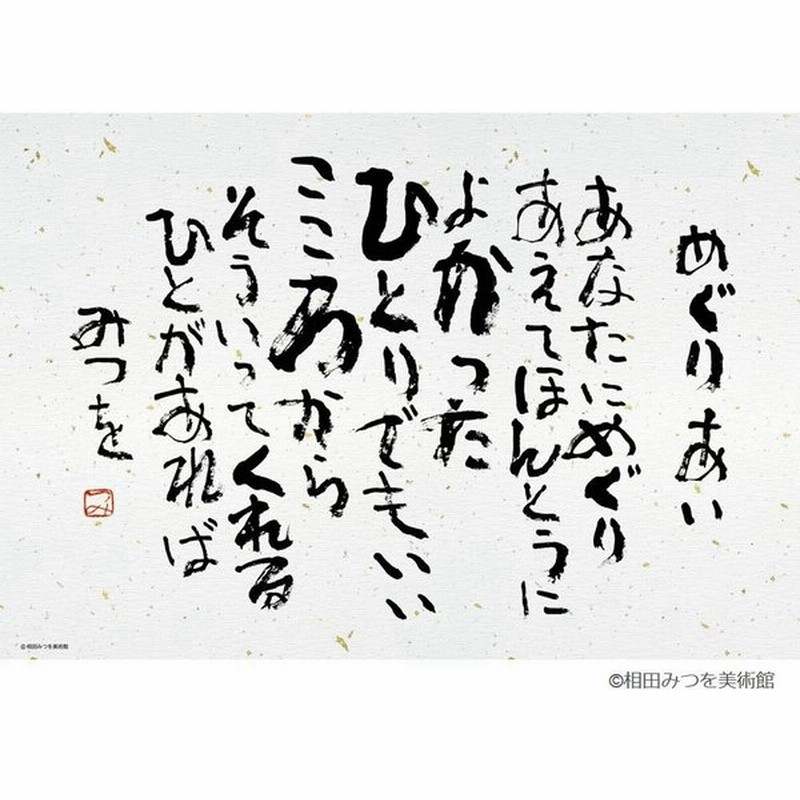 めぐりあい
あなたにめぐり
あえてほんとうに
よかった
ひとりでもいい
こころから
そういってくれる
ひとがあれば
みつを
み
©相田みつを美術館
©相田みつを美術館